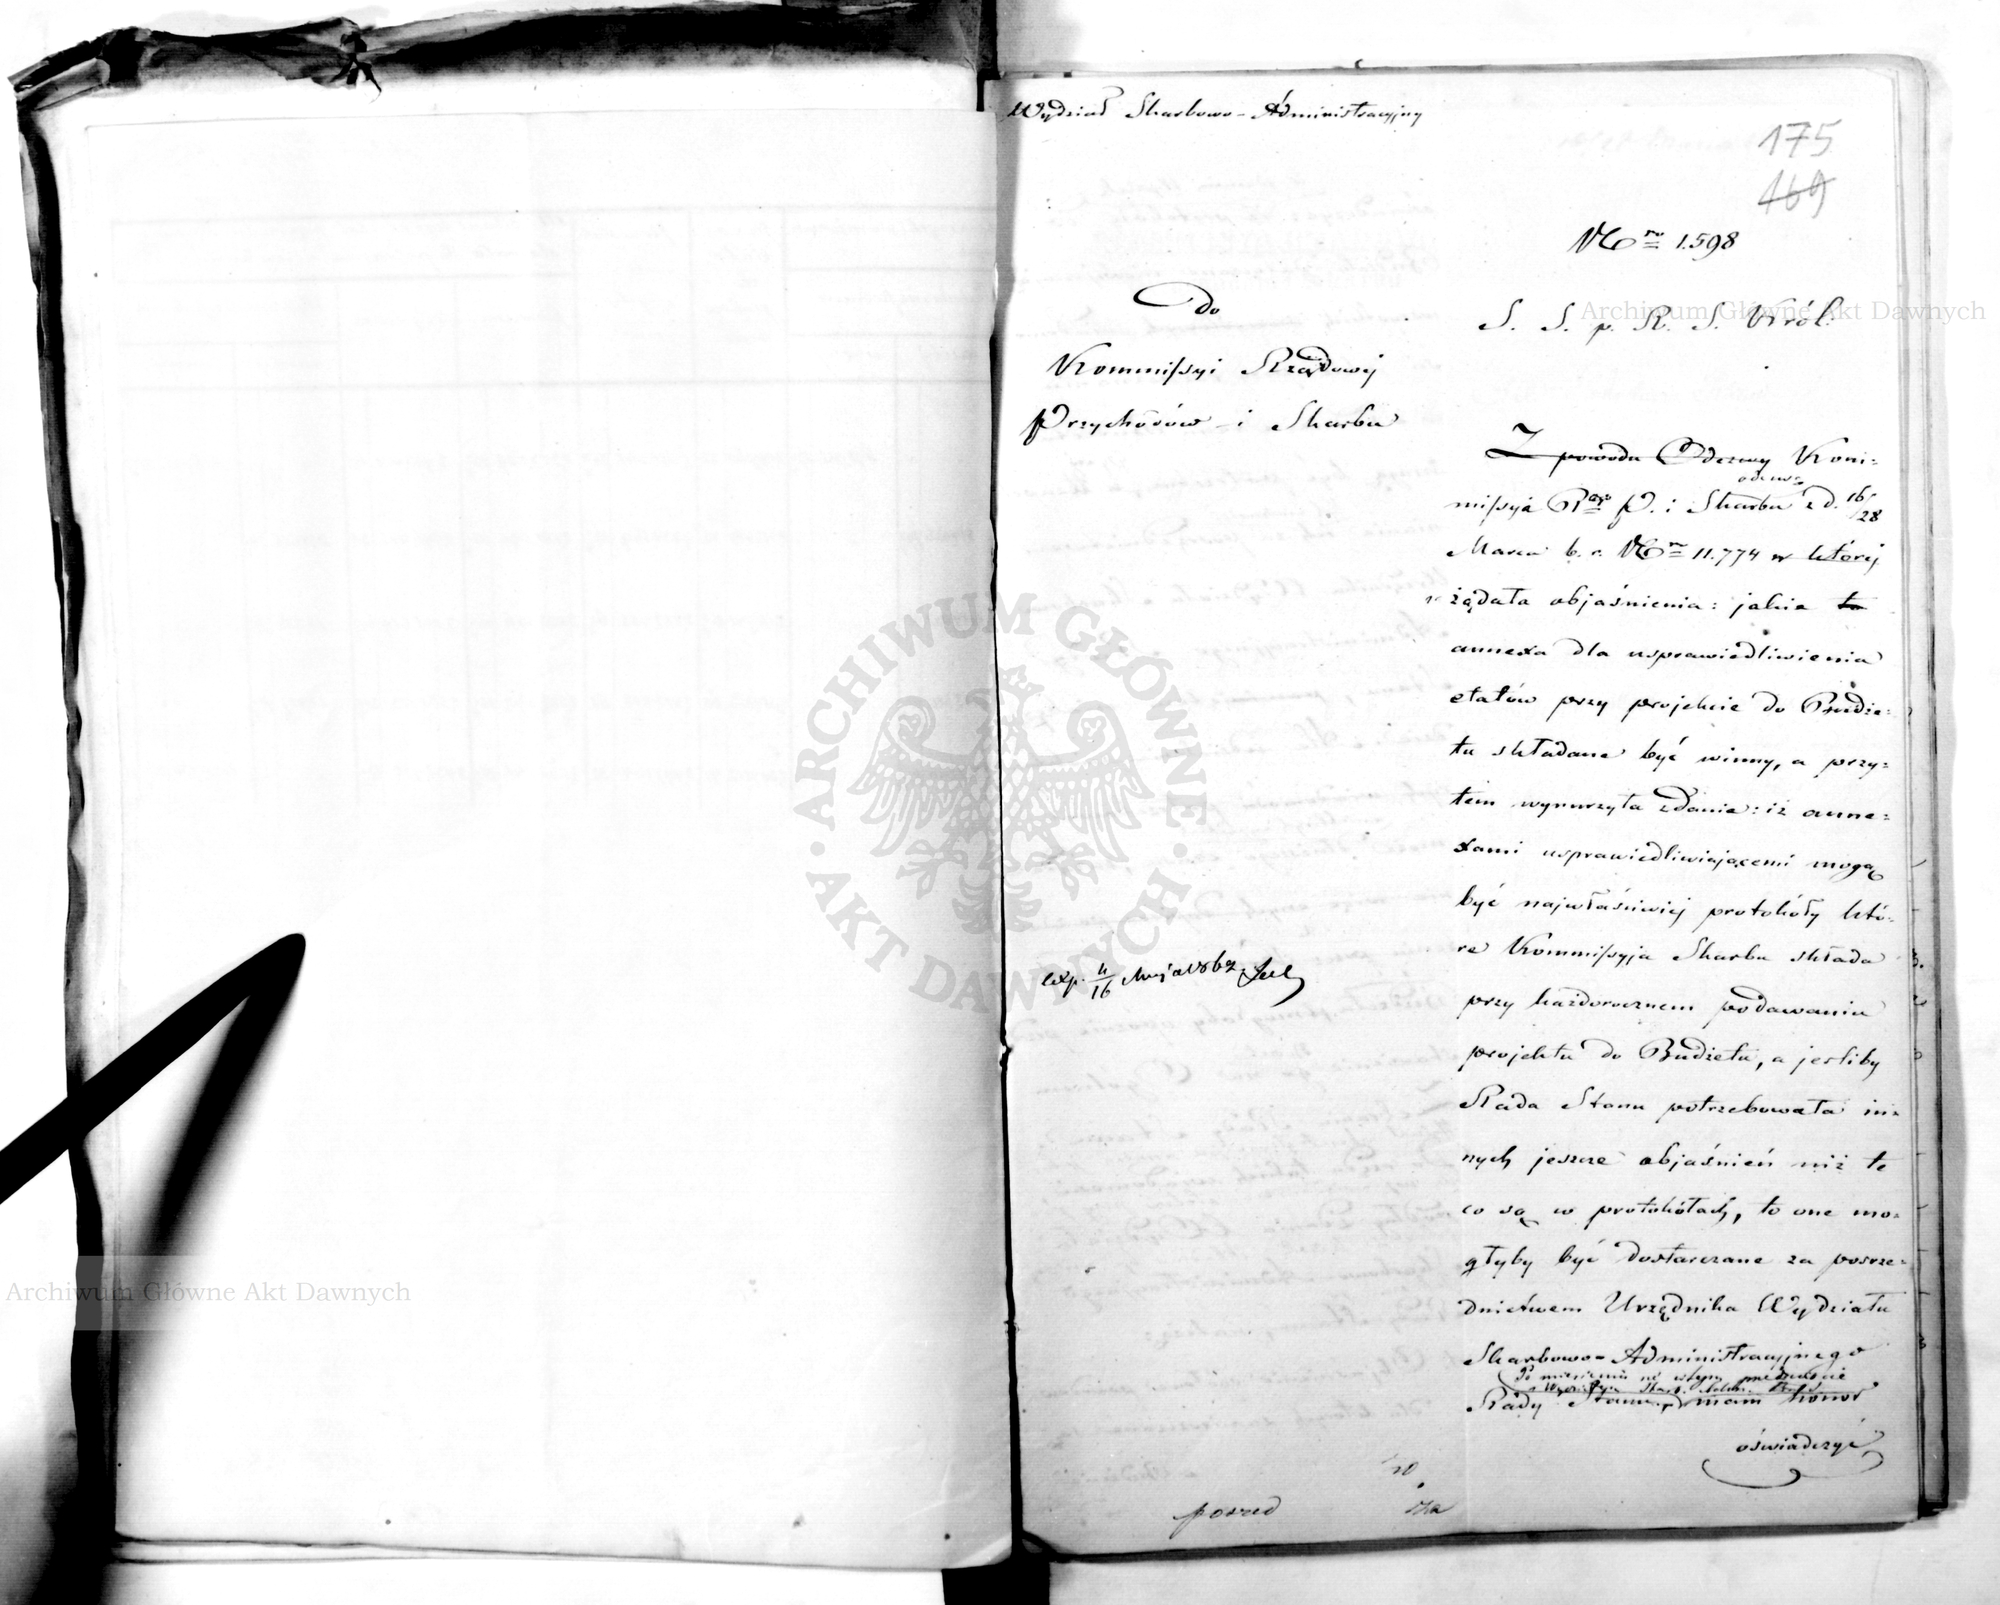 Wydział Skarbowo-Administracyjny
175
169
Nro 1.598
Do
Kommissyi Rządowej
Przychodów i Skarbu
S. S. p. R. S. Król:
Z powodu Odezwy Kom-
missyja R. P. i Skarbu odezwą z d. 16/28
Marca b. r. Nro 11.774 w której
żądała objaśnienia: jakie to
annexa dla usprawiedliwienia
etatów przy projekcie do Budże-
tu składane być winny, a przy-
tem wynurzyła zdanie: iż anne-
xami usprawiedliwiającemi mogą
być najwłaściwiej protokóły któ-
re Kommissyja Skarbu składa
przy każdorocznem podawaniu
projektu do Budżetu, a jeśliby
Rada Stanu potrzebowała in-
nych jeszcze objaśnień niż te
co są w protokółach, to one mo-
głyby być dostarczane za pośre-
dnictwem Urzędnika Wydziału
Skarbowo-Administracyjnego
Po w tym przedmiocie
Rady Stanu, mam honor
oświadczyć
exp. 4/16 Maja
pośred
Archiwum Główne Akt Dawnych
Archiwum Główne Akt Dawnych
ARCHIWUM GŁÓWNE
AKT DAWNYCH